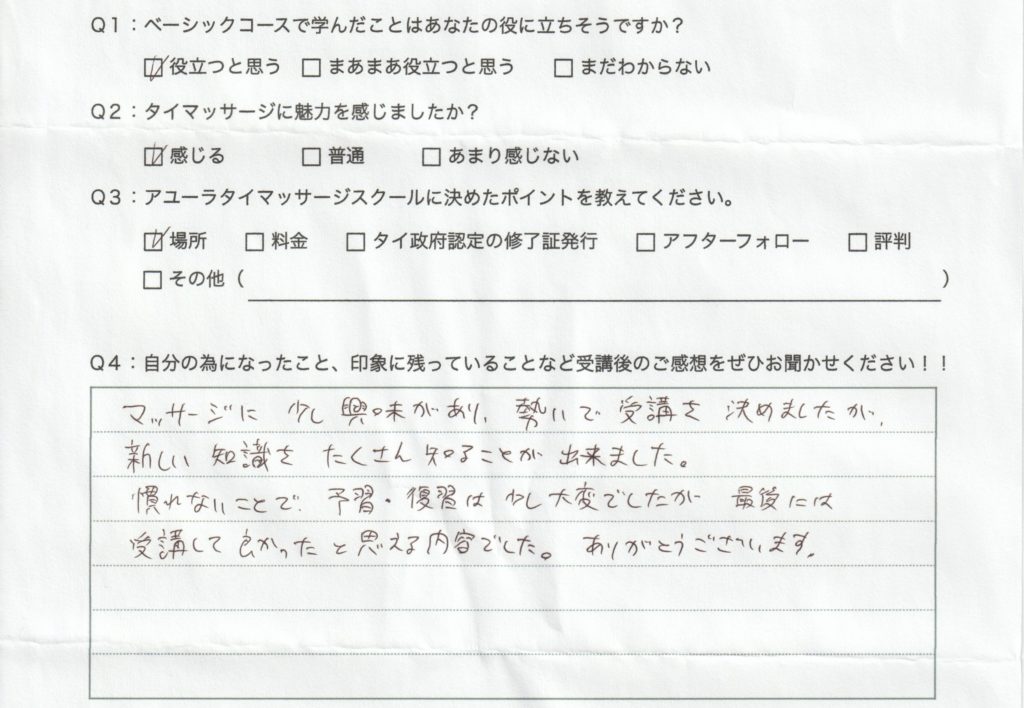 Q1：ベーシックコースで学んだことはあなたの役に立ちそうですか？
☑役立つと思う □まあまあ役立つと思う □まだわからない
Q2：タイマッサージに魅力を感じましたか？
☑感じる □普通 □あまり感じない
Q3：アユーラタイマッサージスクールに決めたポイントを教えてください。
☑場所 □料金 □タイ政府認定の修了証発行 □アフターフォロー □評判
□その他（ ）
Q4：自分の為になったこと、印象に残っていることなど受講後のご感想をぜひお聞かせください！！
マッサージに 少し興味があり、勢いで 受講を 決めましたが、
新しい 知識を たくさん知ることが 出来ました。
慣れないことで、予習・復習は 少し大変でしたが 最後には
受講して 良かったと思える内容でした。ありがとうございます。